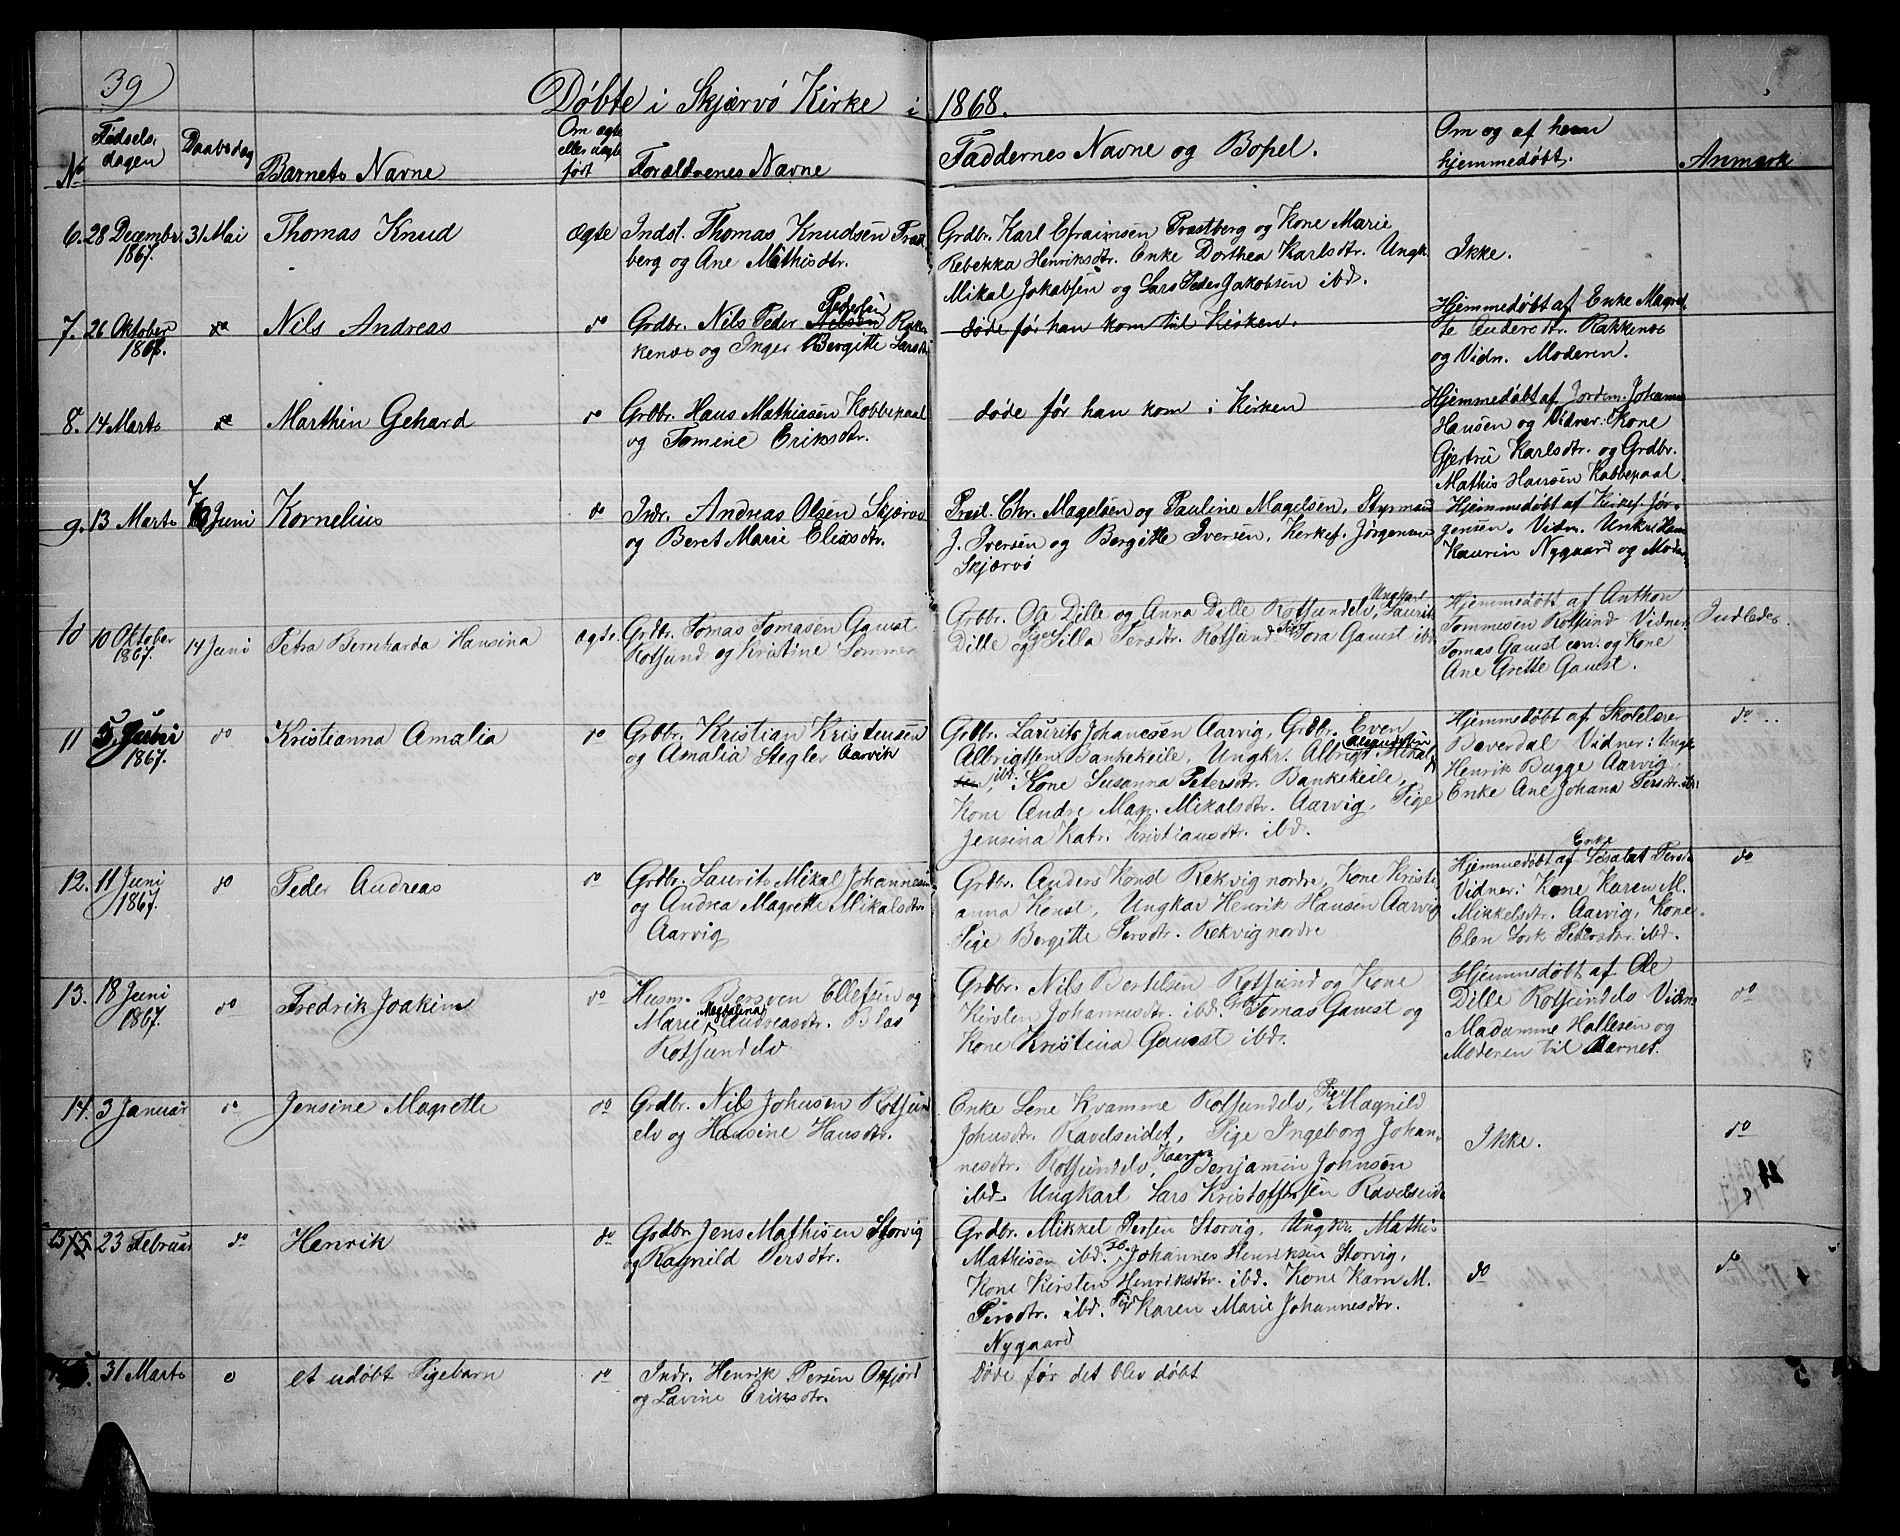 39
Døbte i Skjærvö Kirke i 1868.
No Fødselsdagen Daabsdag Barnets Navne Om ægte eller uægte født Forældrenes Navne Faddernes Navne og Bopel. Om og af hvem hjemmedøbt. Anmærk
6. 28 Decembr. 1867. 31 Mai Thomas Knud ægte
Indst. Thomas Knudsen Præst
berg og Ane Mathisdtr.
Grdbr. Karl Efraimsen Præstberg og Kone Marie
Rebekka Henriksdtr. Enke Dorthea Karlsdtr. Ungk.
Mikal Jokabsen og Lars Peder Jakobsen ibd.
Ikke.
7. 26 Oktober 1867. do Nils Andreas do
Pedersen
Grdbr. Nils Peder Nilsen Rak
kenæs og Inger Bergitte Larsdtr
døde før han kom til Kirken.
Hjemmedøbt af Enke Magret
te Andersdtr. Rakkenæs
og Vidn. Moderen.
8. 14 Marts do Marthin Gehard do
Grdbr. Hans Mathiasen Kobbepaal
og Tomine Eriksdtr.
døde før han kom i Kirken
Hjemmedøbt af Jordm. Johanna
Hansen og Vidner: Kone
Gjertru Karlsdtr. og Grdbr.
Mathis Hansen Kobbepaal.
9. 13 Marts 7 Juni Kornelius do
Indr. Andreas Olsen Skjærvö
og Beret Marie Eliasdtr.
Præst. Chr. Magelsen og Pauline Magelsen, Styrmand
J. Iversen og Bergitte Iversen, Kirkef. Jørgensen
Skjærvö
Hjemmedøbt af Kirkef. Jør-
gensen, Vidn. Unkr. Hans
Kaurin Nygaard og Moder
10 10 Oktober 1867. 14 Juni Petra Bernharda Hansina ægte.
Grdbr. Tomas Tomasen Gaust
Rotsund og Kristine Sommer
Ungkarl
Grbr. Ole Dille og Anna Dille Rotsundelv, Laurits
Dille og Pige Silla Persdtr. Rotsund Tora Gaust ibd
Hjemmedøbt af Anthon
Tommesen Rotsund Vidner:
Tomas Gaust sen. og Kone
Ane Grette Gaust.
Indleder.
11 5 Juni 1867. do Kristianna Amalia do
Grdbr. Kristian Kristensen
og Amalia Stegler Aarvik
Grdbr. Laurits Johanesen Aarvig, Grdbr. Even
Albrigtsen Bankekeile, Ungkr. Albrigt
ibd. Kone Susanna Petersdtr. Bankekeile,
Kone Andre Mag. Mikalsdtr. Aarvig, Pige
Jensina Katr. Kristiansdtr. ibd.
Hjemmedøbt af Skolelærer
Bæverdal Vidner: Ungk
Henrik Bugge Aarvig,
Enke Ane Johana Persdtr. ibd
do
12. 11 Juni 1867. do Peder Andreas do
Grdbr. Laurits Mikal Johannesen
og Andrea Magrette Mikalsdtr.
Aarvig
Grdbr. Anders Konst Rekvig nordre, Kone Kristi
anna Konst, Ungkar Henrik Hansen Aarvig
Pige Bergitte Persdtr. Rekvig nordre
Enke
Hjemmedøbt af Lisabet Persd
Vidner: Kone Karen M.
Mikkelsdtr. Aarvig, Kone
Elen Petersdtr. ibd.
do
13. 18 Juni 1867. do Fredrik Joakim do
Husm. Ellefsen og
Marie Magdalena Andreasdtr. Blas
Rotsundelv
Grdbr. Nils Bertelsen Rotsund og Kone
Kirsten Johannesdtr. ibd. Grdb Tomas Gaust og
Kone Kristina Gaust ibd.
Hjemmedøbt af Ole
Dille Rotsundelv Vidn.
Madamme Hallesen og
Moderen til Barnet.
do
14. 3 Januar do Jensine Magrette do
Grdbr. Nils Johnsen Rotsund
elv og Hansine Hansdtr.
Enke Lene Kvamme Rotsundelv, Pige Magnild
Johnsdtr. Ravelseidet, Pige Ingeborg Johan-
nesdtr. Rotsundelv, Benjamin Johnsen
ibd. Ungkarl Lars Kristoffersen Ravelseide
Ikke.
do
15 23 Februar do Henrik do
Grdbr. Jens Mathisen Storvig
og Ragnild Persdtr.
Grdbr. Mikkel Persen Storvig, Ungkr. Mathis
Mathisen ibd. Johannes Henriksen Storvig,
Kone Kirsten Henriksdtr. ibd. Kone Karn M.
Persdtr. ibd. Pige Karen Marie Johannesdtr.
Nygaard
do
do
31 Marts et udøbt Pigebarn do
Indr. Henrik Persen Oxfjord
og Lavine Eriksdtr.
Døde før det blev døbt